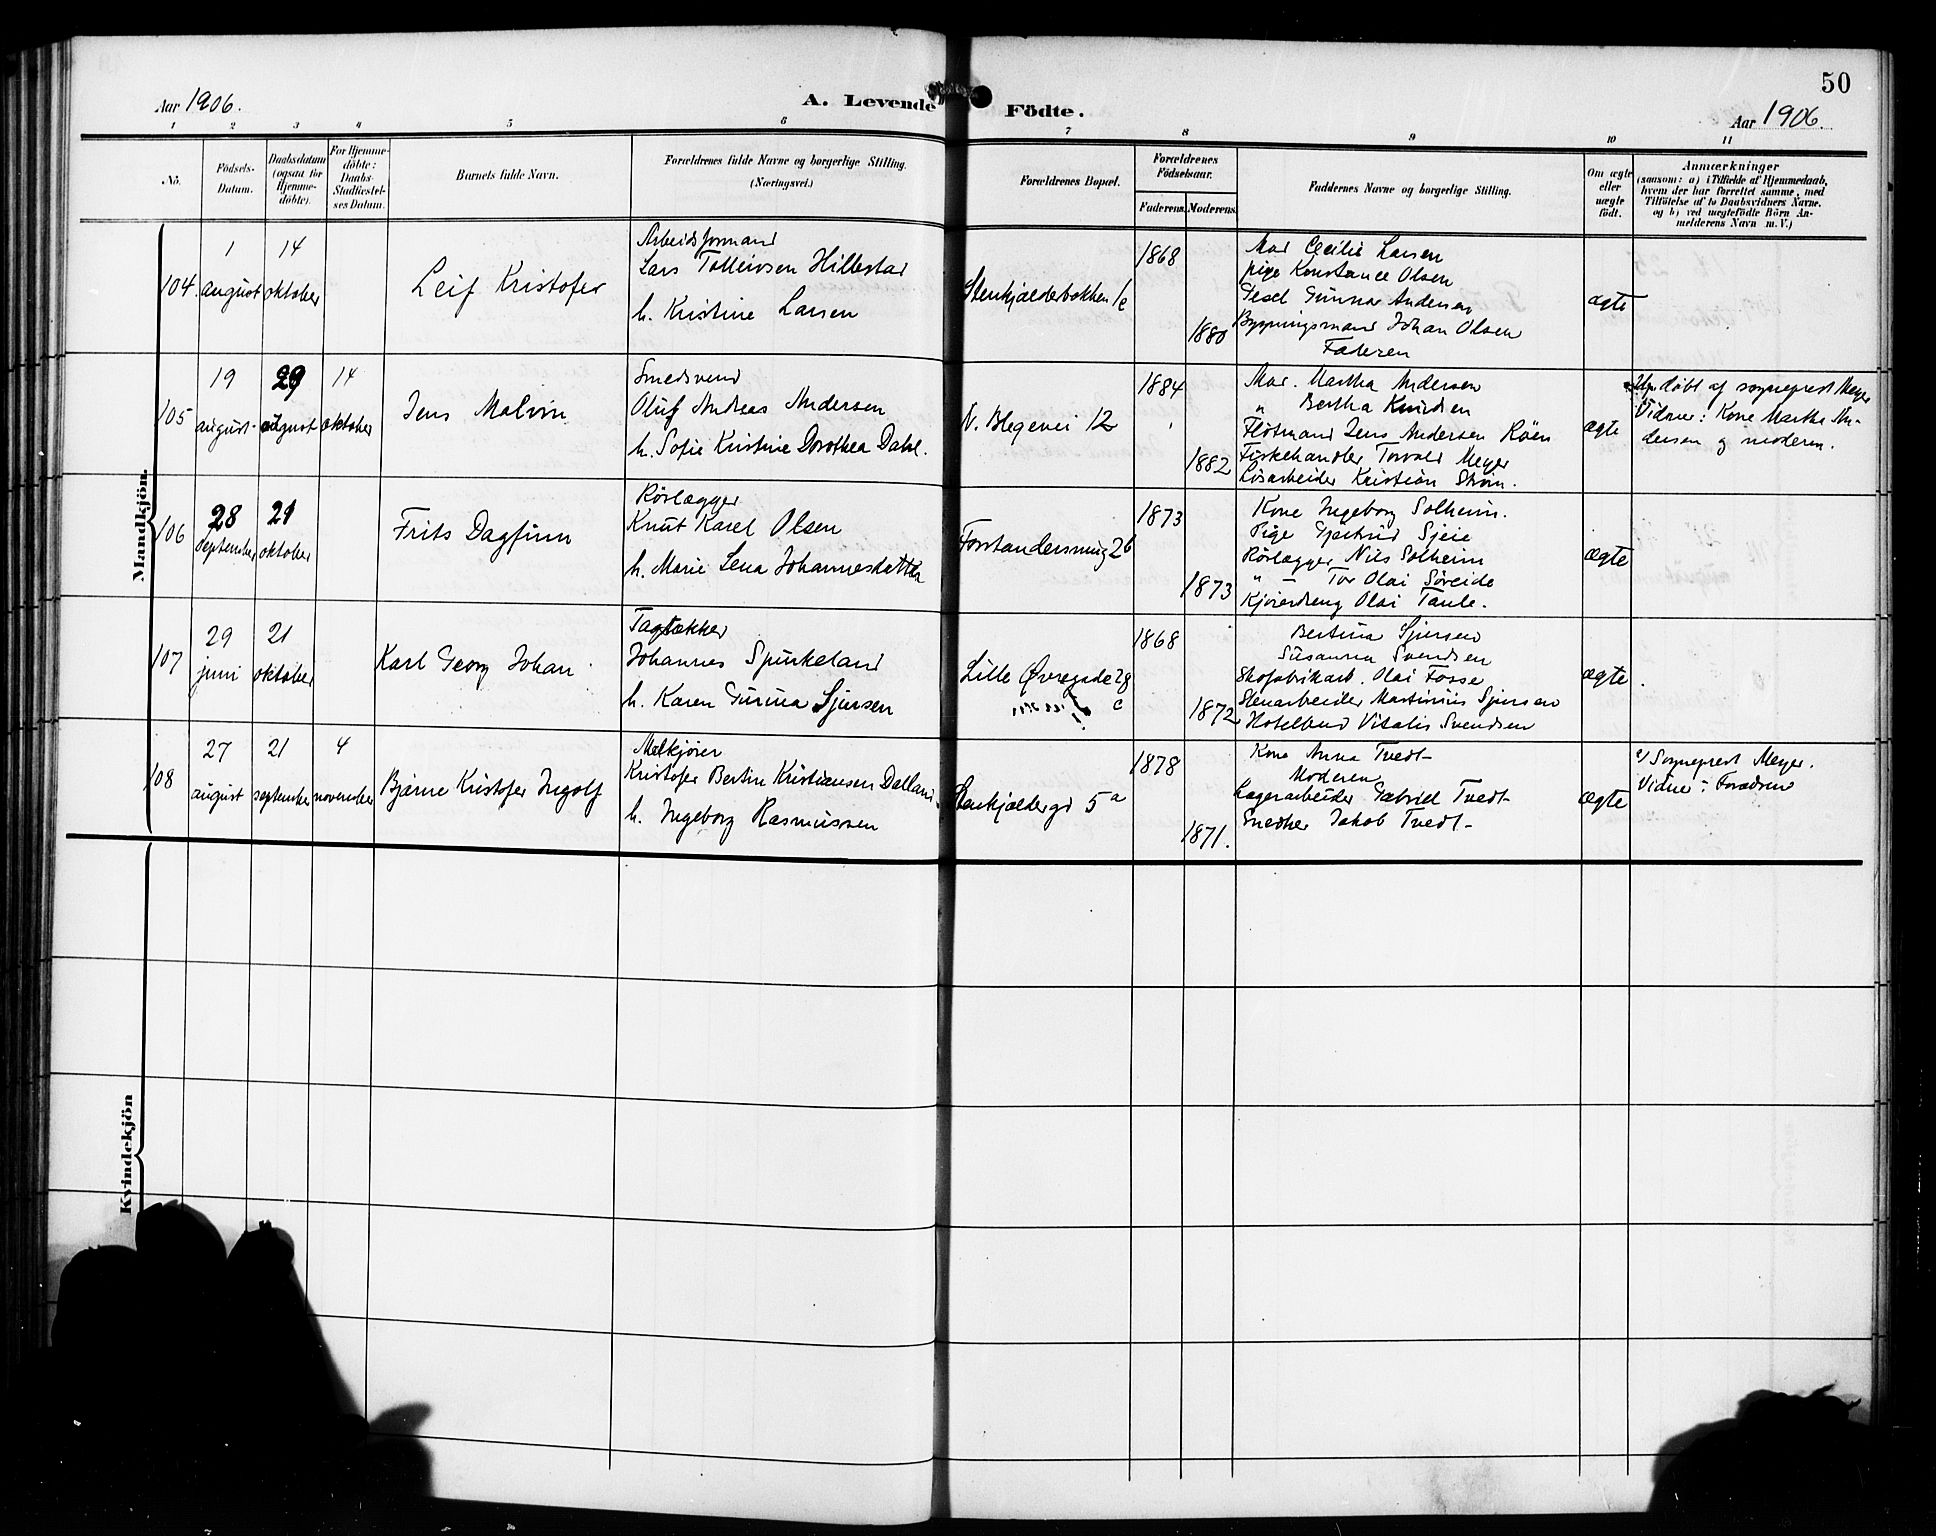 50
Aar 1906.
A. Levende Födte.
Aar 1906.
1 2 3 4 5 6 7 8 9 10 11
No.
Födsels-
Datum.
Daabsdatum
(ogsaa for
Hjemme-
döbte).
For Hjemme-
döbte:
Daabs-
Stadfæstel-
ses Datum.
Barnets fulde Navn.
Forældrenes fulde Navne og borgerlige Stilling.
(Næringsvei.)
Forældrenes Bopæl.
Forældrenes
Födselsaar.
Faderens.
Moderens.
Faddernes Navne og borgerlige Stilling.
Om ægte
eller
uægte
födt.
Anmærkninger
(saasom: a) i Tilfælde af Hjemmedaab,
hvem der har forrettet samme, med
Tilföielse af to Daabsvidners Navne,
og b) ved uægtefödte Börn An-
melderens Navn m. V.)
Mandkjön.
104.
1
august
14
oktober
Leif Kristofer
Arbeidsformand
Lars Tolleivsen Hillestad
h. Kristine Larsen
Stenkjælderbakken 1c
1868
1880
Mad Cecilie Larsen
pige Konstance Olsen
Gesel Gunnar Andersen
Bygningsmand Johan Olsen
Faderen
ægte
105
19
august
29
august
14
oktober
Jens Malvin
Smedsvend
Oluf Andreas Andersen
h. Sofie Kristine Dorothea Dahl.
N. Blegevei 12
1884
1882
Mad. Martha Andersen
" Bertha Knudsen
Flötmand Jens Andersen Röen
Fiskehandler Torvald Meyer
Lösarbeider Kristian Ström.
ægte
döbt af sogneprest Meyer
Vidner: Kone Martha An-
dersen og moderen.
106
28
september
21
oktober
Frits Dagfinn
Rörlægger
Knut Karel Olsen
h. Marie Lena Johannesdatter
Forstandersmug 2b
1873
1873
Kone Ingeborg Solheim.
Pige Gjertrud Sjeie
Rörlægger Nils Solheim
" - Tor Olai Söreide
Kjöredreng Olai Taule.
ægte
107
29
juni
21
oktober
Karl Georg Johan
Tagtækker
Johannes Spurkeland
h. Karen Gurina Sjursen
Lille Øvregade 28
c
1868
1872
Bertina Sjursen
Susanna Svendsen
Skofabrikarb. Olai Fosse
Stenarbeider Martinius Sjursen
Hotelbud Vitalis Svendsen
ægte
108
27
august
21
september
4
november
Bjarne Kristofer Ingolf
Mælkjører
Kristofer Bertin Kristiansen Dalland
h. Ingeborg Rasmussen
Stenkjældergd 5a
1878
1871.
Kone Anna Tvedt
Moderen
Lagerarbeider Gabriel Tvedt
Snedker Jakob Tvedt
ægte
a) Sogneprest Meyer.
Vidner: Forældrene
Kvindekjön